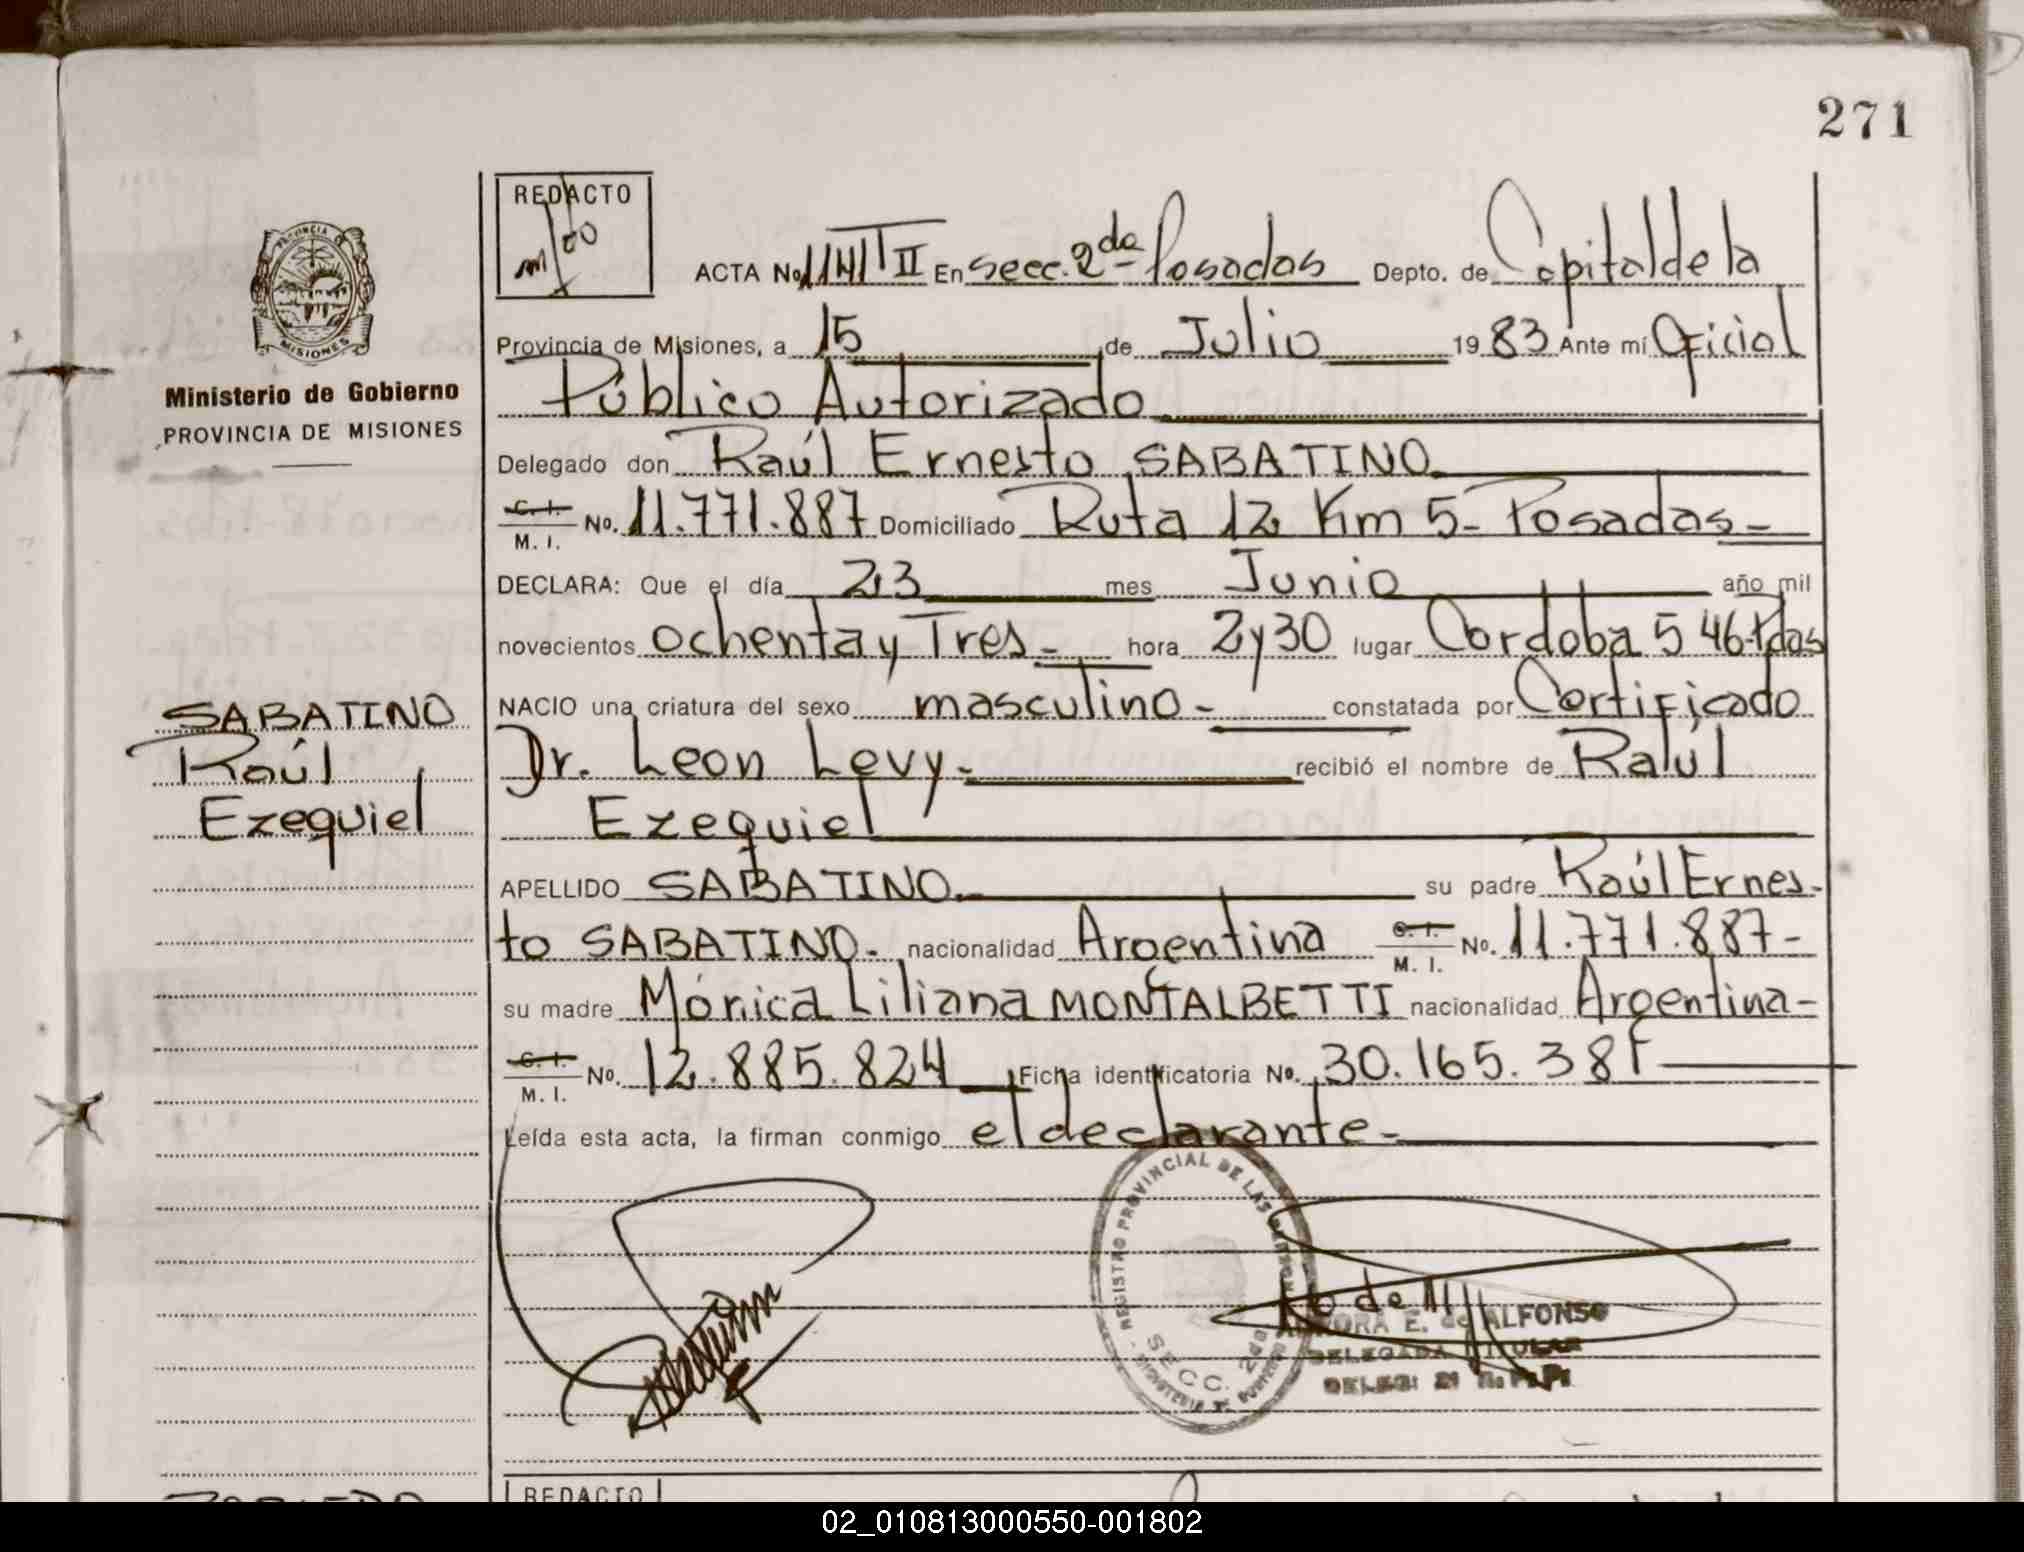 271
REDACTO
ACTA No. En secc. 2da Posadas Depto. de Capital de la
Provincia de Misiones, a 15 de Julio 1983 Ante mí Oficial
Público Autorizado
Ministerio de Gobierno
PROVINCIA DE MISIONES
Delegado don Raúl Ernesto SABATINO
C. I. M. I. No. 11.771.887 Domiciliado Ruta 12 Km 5- Posadas-
DECLARA: Que el día 23 mes Junio año mil
novecientos ochenta y Tres- hora 2y30 lugar Cordoba 546-Pdas
NACIO una criatura del sexo masculino- constatada por Certificado
Dr. Leon Levy- recibió el nombre de Raúl
Ezequiel
SABATINO
Raúl
Ezequiel
APELLIDO SABATINO su padre Raúl Ernes-
to SABATINO- nacionalidad Argentina C. I. M. I. No. 11.771.887-
su madre Mónica Liliana MONTALBETTI nacionalidad Argentina-
C. I. M. I. No. 12.885.824 Ficha identificatoria No. 30.165.38
Leída esta acta, la firman conmigo el declarante-
REGISTRO PROVINCIAL DE LAS PERSONAS
SECC. 2da
E. de ALFONSO
DELEGADA TITULAR
REDACTO
02_010813000550-001802